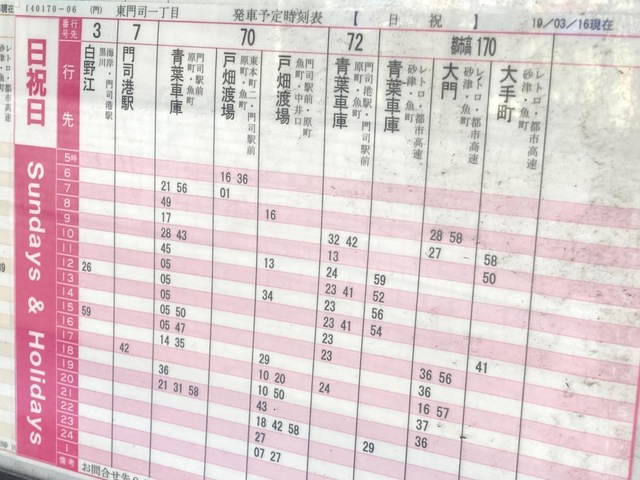 140170-06 (門) 東門司一丁目 発車予定時刻表 【 日 祝 】 19/03/16現在
行先番号 3 7 70 72 都市高 170
日祝日
Sundays & Holidays
行先
白野江 海岸・門司港駅 黒川
門司港駅
青葉車庫 門司駅前 原町・魚町
戸畑渡場 東本町二・門司駅前 原町・魚町
戸畑渡場 門司駅前・原町 魚町・中井口
青葉車庫 門司港駅・門司駅前 原町・魚町
青葉車庫 レトロ・都市高速 砂津・魚町
大門 レトロ・都市高速 砂津・魚町
大手町 レトロ・都市高速 砂津・魚町
5時
6 16 36
7 21 56 01
8 49
9 17 16
10 28 43 32 42 28 58
11 45 13 27 58
12 26 05 13 24 59 50
13 05 23 41 52
14 05 34 23 56
15 59 05 50 23 41 54
16 05 47 23
17 14 35 23
18 42 29 41
19 36 10 20 36 56
20 21 31 58 10 50 24 36
21 43 16 57
22 18 42 58 37
23 27 29 36
24 07 27
1
備考 お問合せ先